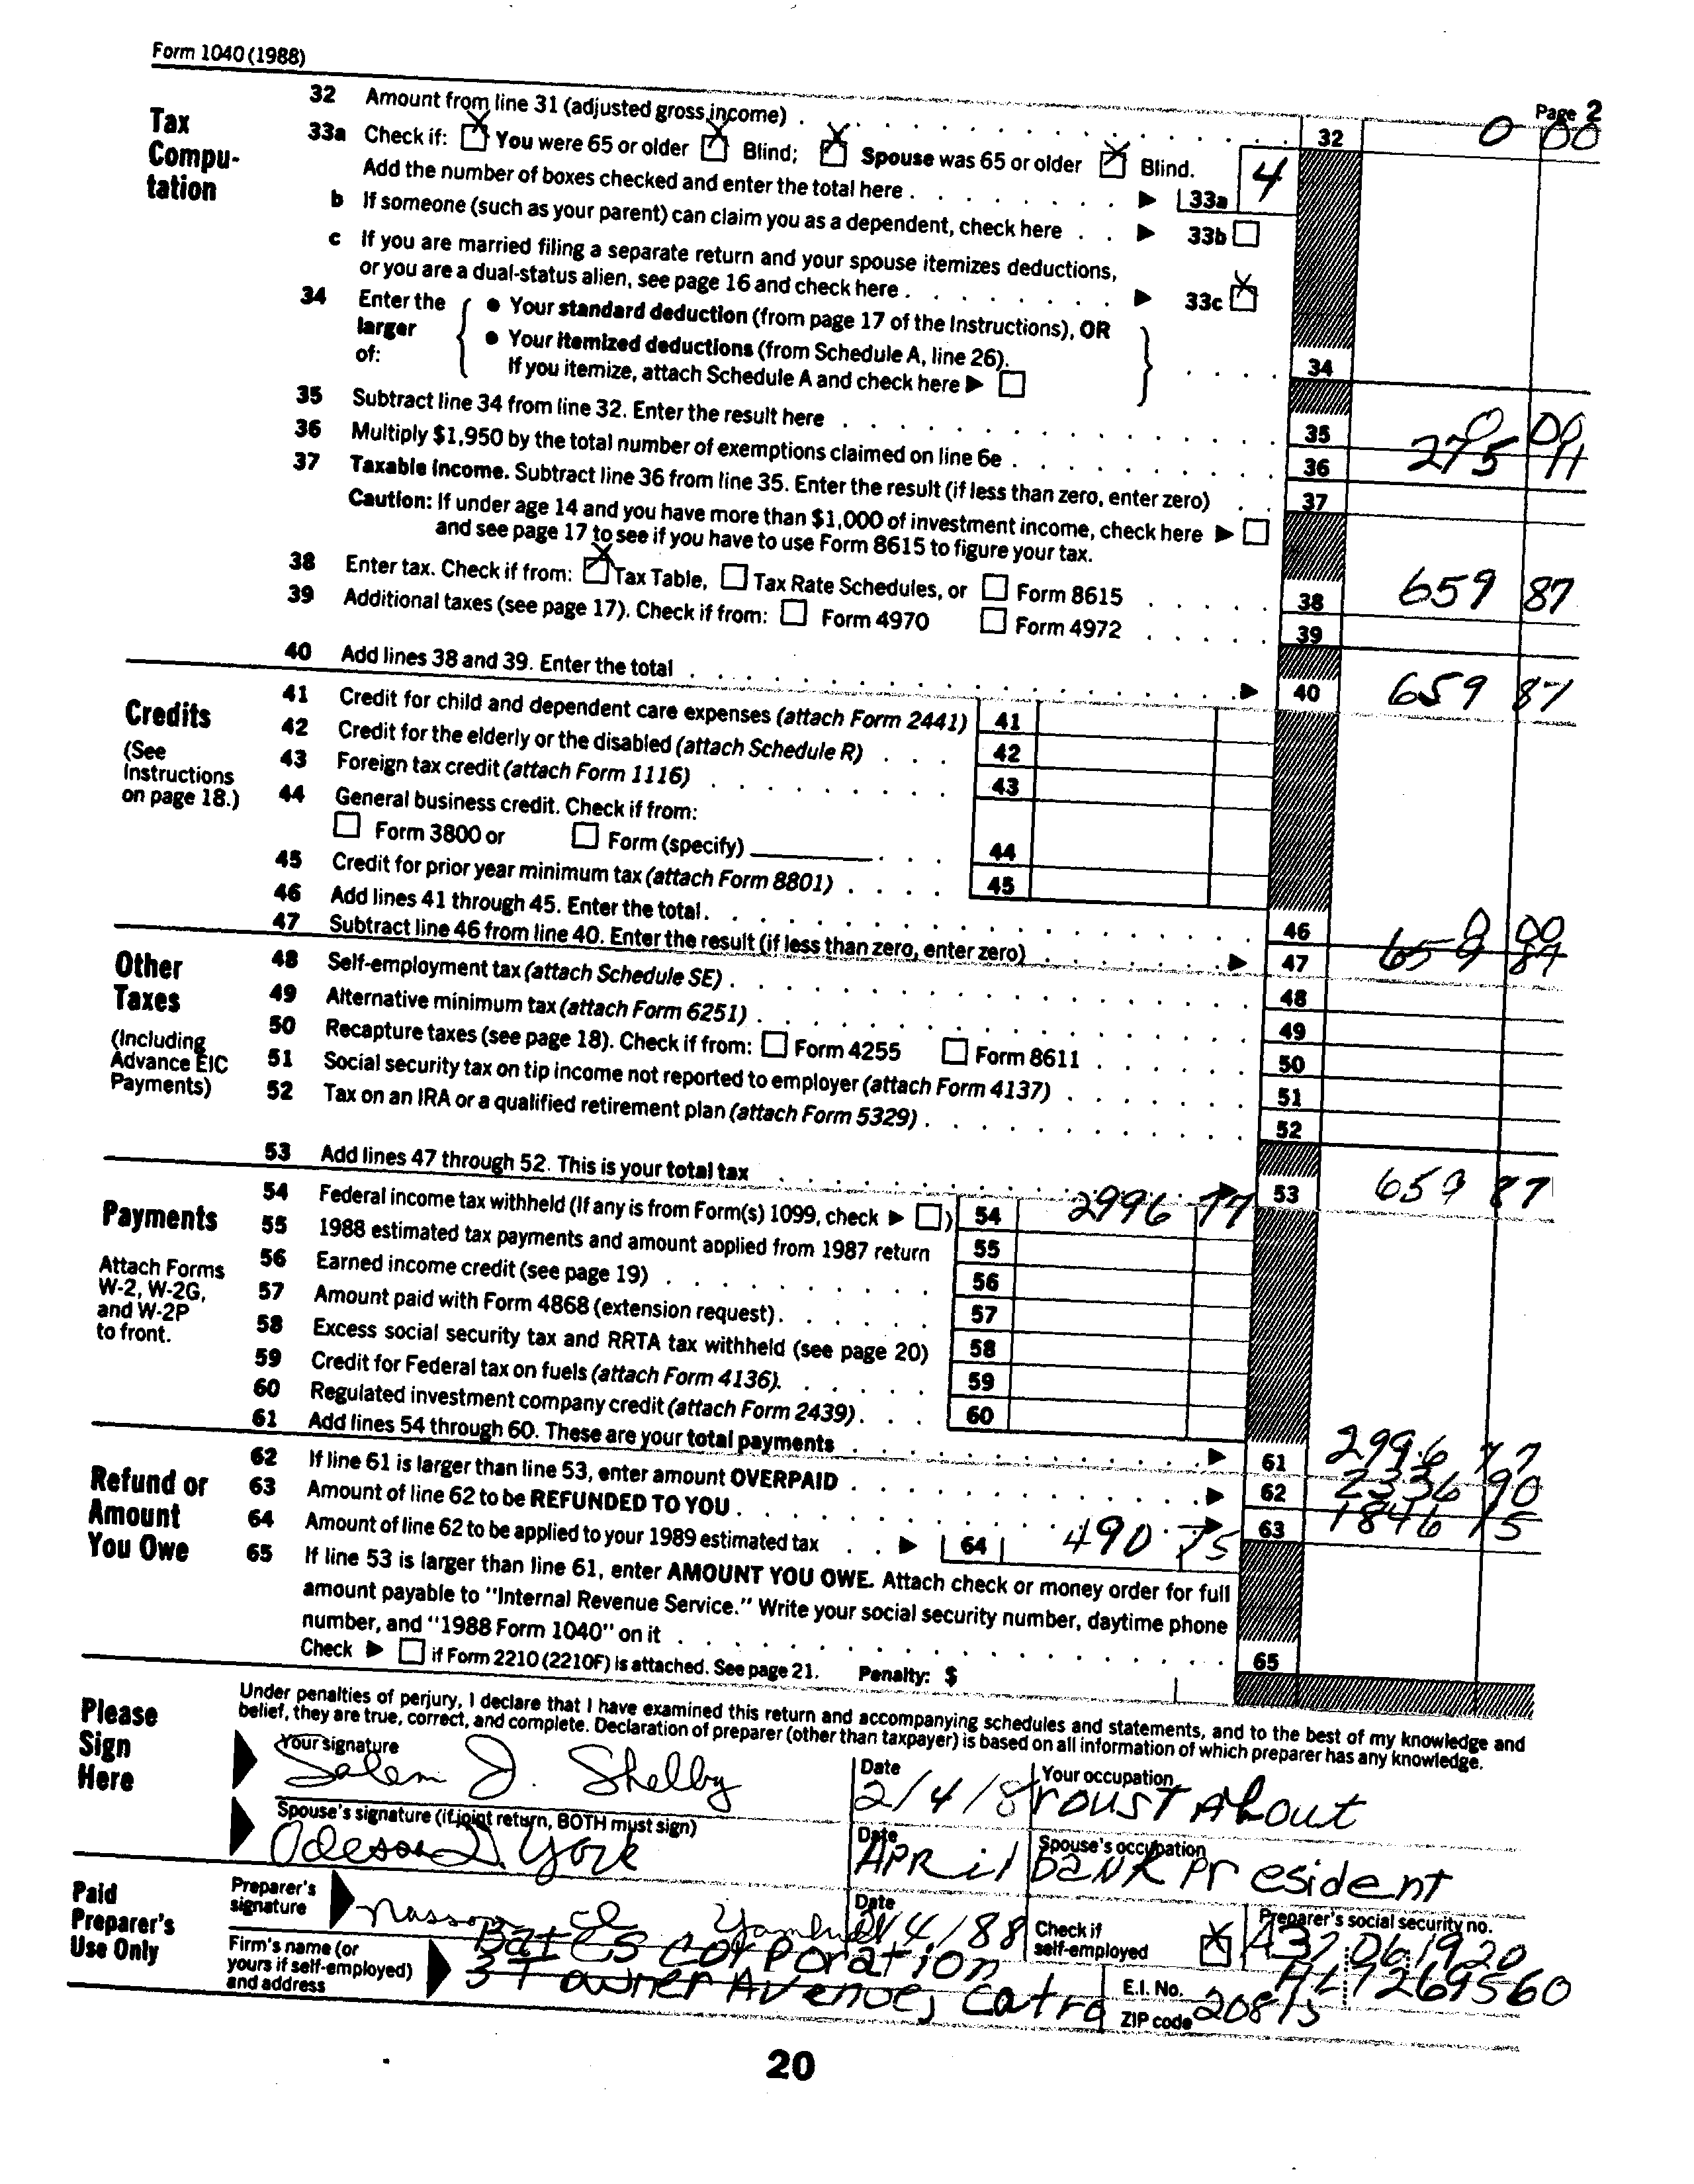 Form 1040 (1988)
Page 2
Tax Compu-tation
32 Amount from line 31 (adjusted gross income) 32 0 00
33a Check if: X You were 65 or older X Blind; X Spouse was 65 or older X Blind.
Add the number of boxes checked and enter the total here 33a 4
b If someone (such as your parent) can claim you as a dependent, check here 33b
c If you are married filing a separate return and your spouse itemizes deductions,
or you are a dual-status alien, see page 16 and check here 33c X
34 Enter the larger of:
• Your standard deduction (from page 17 of the Instructions), OR
• Your itemized deductions (from Schedule A, line 26).
If you itemize, attach Schedule A and check here
34
35 Subtract line 34 from line 32. Enter the result here 35 0 00
36 Multiply $1,950 by the total number of exemptions claimed on line 6e 36 275 11
37 Taxable income. Subtract line 36 from line 35. Enter the result (if less than zero, enter zero) 37
Caution: If under age 14 and you have more than $1,000 of investment income, check here
and see page 17 to see if you have to use Form 8615 to figure your tax.
38 Enter tax. Check if from: X Tax Table, Tax Rate Schedules, or Form 8615 38 659 87
39 Additional taxes (see page 17). Check if from: Form 4970 Form 4972 39
40 Add lines 38 and 39. Enter the total 40 659 87
Credits
(See Instructions on page 18.)
41 Credit for child and dependent care expenses (attach Form 2441) 41
42 Credit for the elderly or the disabled (attach Schedule R) 42
43 Foreign tax credit (attach Form 1116) 43
44 General business credit. Check if from:
Form 3800 or Form (specify) 44
45 Credit for prior year minimum tax (attach Form 8801) 45
46 Add lines 41 through 45. Enter the total. 46 0 00
47 Subtract line 46 from line 40. Enter the result (if less than zero, enter zero) 47 659 87
Other Taxes
(Including Advance EIC Payments)
48 Self-employment tax (attach Schedule SE) 48
49 Alternative minimum tax (attach Form 6251) 49
50 Recapture taxes (see page 18). Check if from: Form 4255 Form 8611 50
51 Social security tax on tip income not reported to employer (attach Form 4137) 51
52 Tax on an IRA or a qualified retirement plan (attach Form 5329) 52
53 Add lines 47 through 52. This is your total tax 53 659 87
Payments
Attach Forms W-2, W-2G, and W-2P to front.
54 Federal income tax withheld (If any is from Form(s) 1099, check ) 54 2996 77
55 1988 estimated tax payments and amount applied from 1987 return 55
56 Earned income credit (see page 19) 56
57 Amount paid with Form 4868 (extension request) 57
58 Excess social security tax and RRTA tax withheld (see page 20) 58
59 Credit for Federal tax on fuels (attach Form 4136) 59
60 Regulated investment company credit (attach Form 2439) 60
61 Add lines 54 through 60. These are your total payments 61 2996 77
Refund or Amount You Owe
62 If line 61 is larger than line 53, enter amount OVERPAID 62 2336 90
63 Amount of line 62 to be REFUNDED TO YOU 63 1846 15
64 Amount of line 62 to be applied to your 1989 estimated tax 64 490 75
65 If line 53 is larger than line 61, enter AMOUNT YOU OWE. Attach check or money order for full
amount payable to "Internal Revenue Service." Write your social security number, daytime phone
number, and "1988 Form 1040" on it 65
Check if Form 2210 (2210F) is attached. See page 21. Penalty: $
Please Sign Here
Under penalties of perjury, I declare that I have examined this return and accompanying schedules and statements, and to the best of my knowledge and
belief, they are true, correct, and complete. Declaration of preparer (other than taxpayer) is based on all information of which preparer has any knowledge.
Your signature Salem J. Shelby
Date 2/4/8
Your occupation roust About
Spouse's signature (if joint return, BOTH must sign) York
Date APRil
Spouse's occupation baNK President
Paid Preparer's Use Only
Preparer's signature
Date 4/88
Check if self-employed X
Preparer's social security no. A32 061920
Firm's name (or yours if self-employed) and address
Bates Corporation
37 owner Avenue, Catra
E.I. No. AL7269560
ZIP code 20815
20